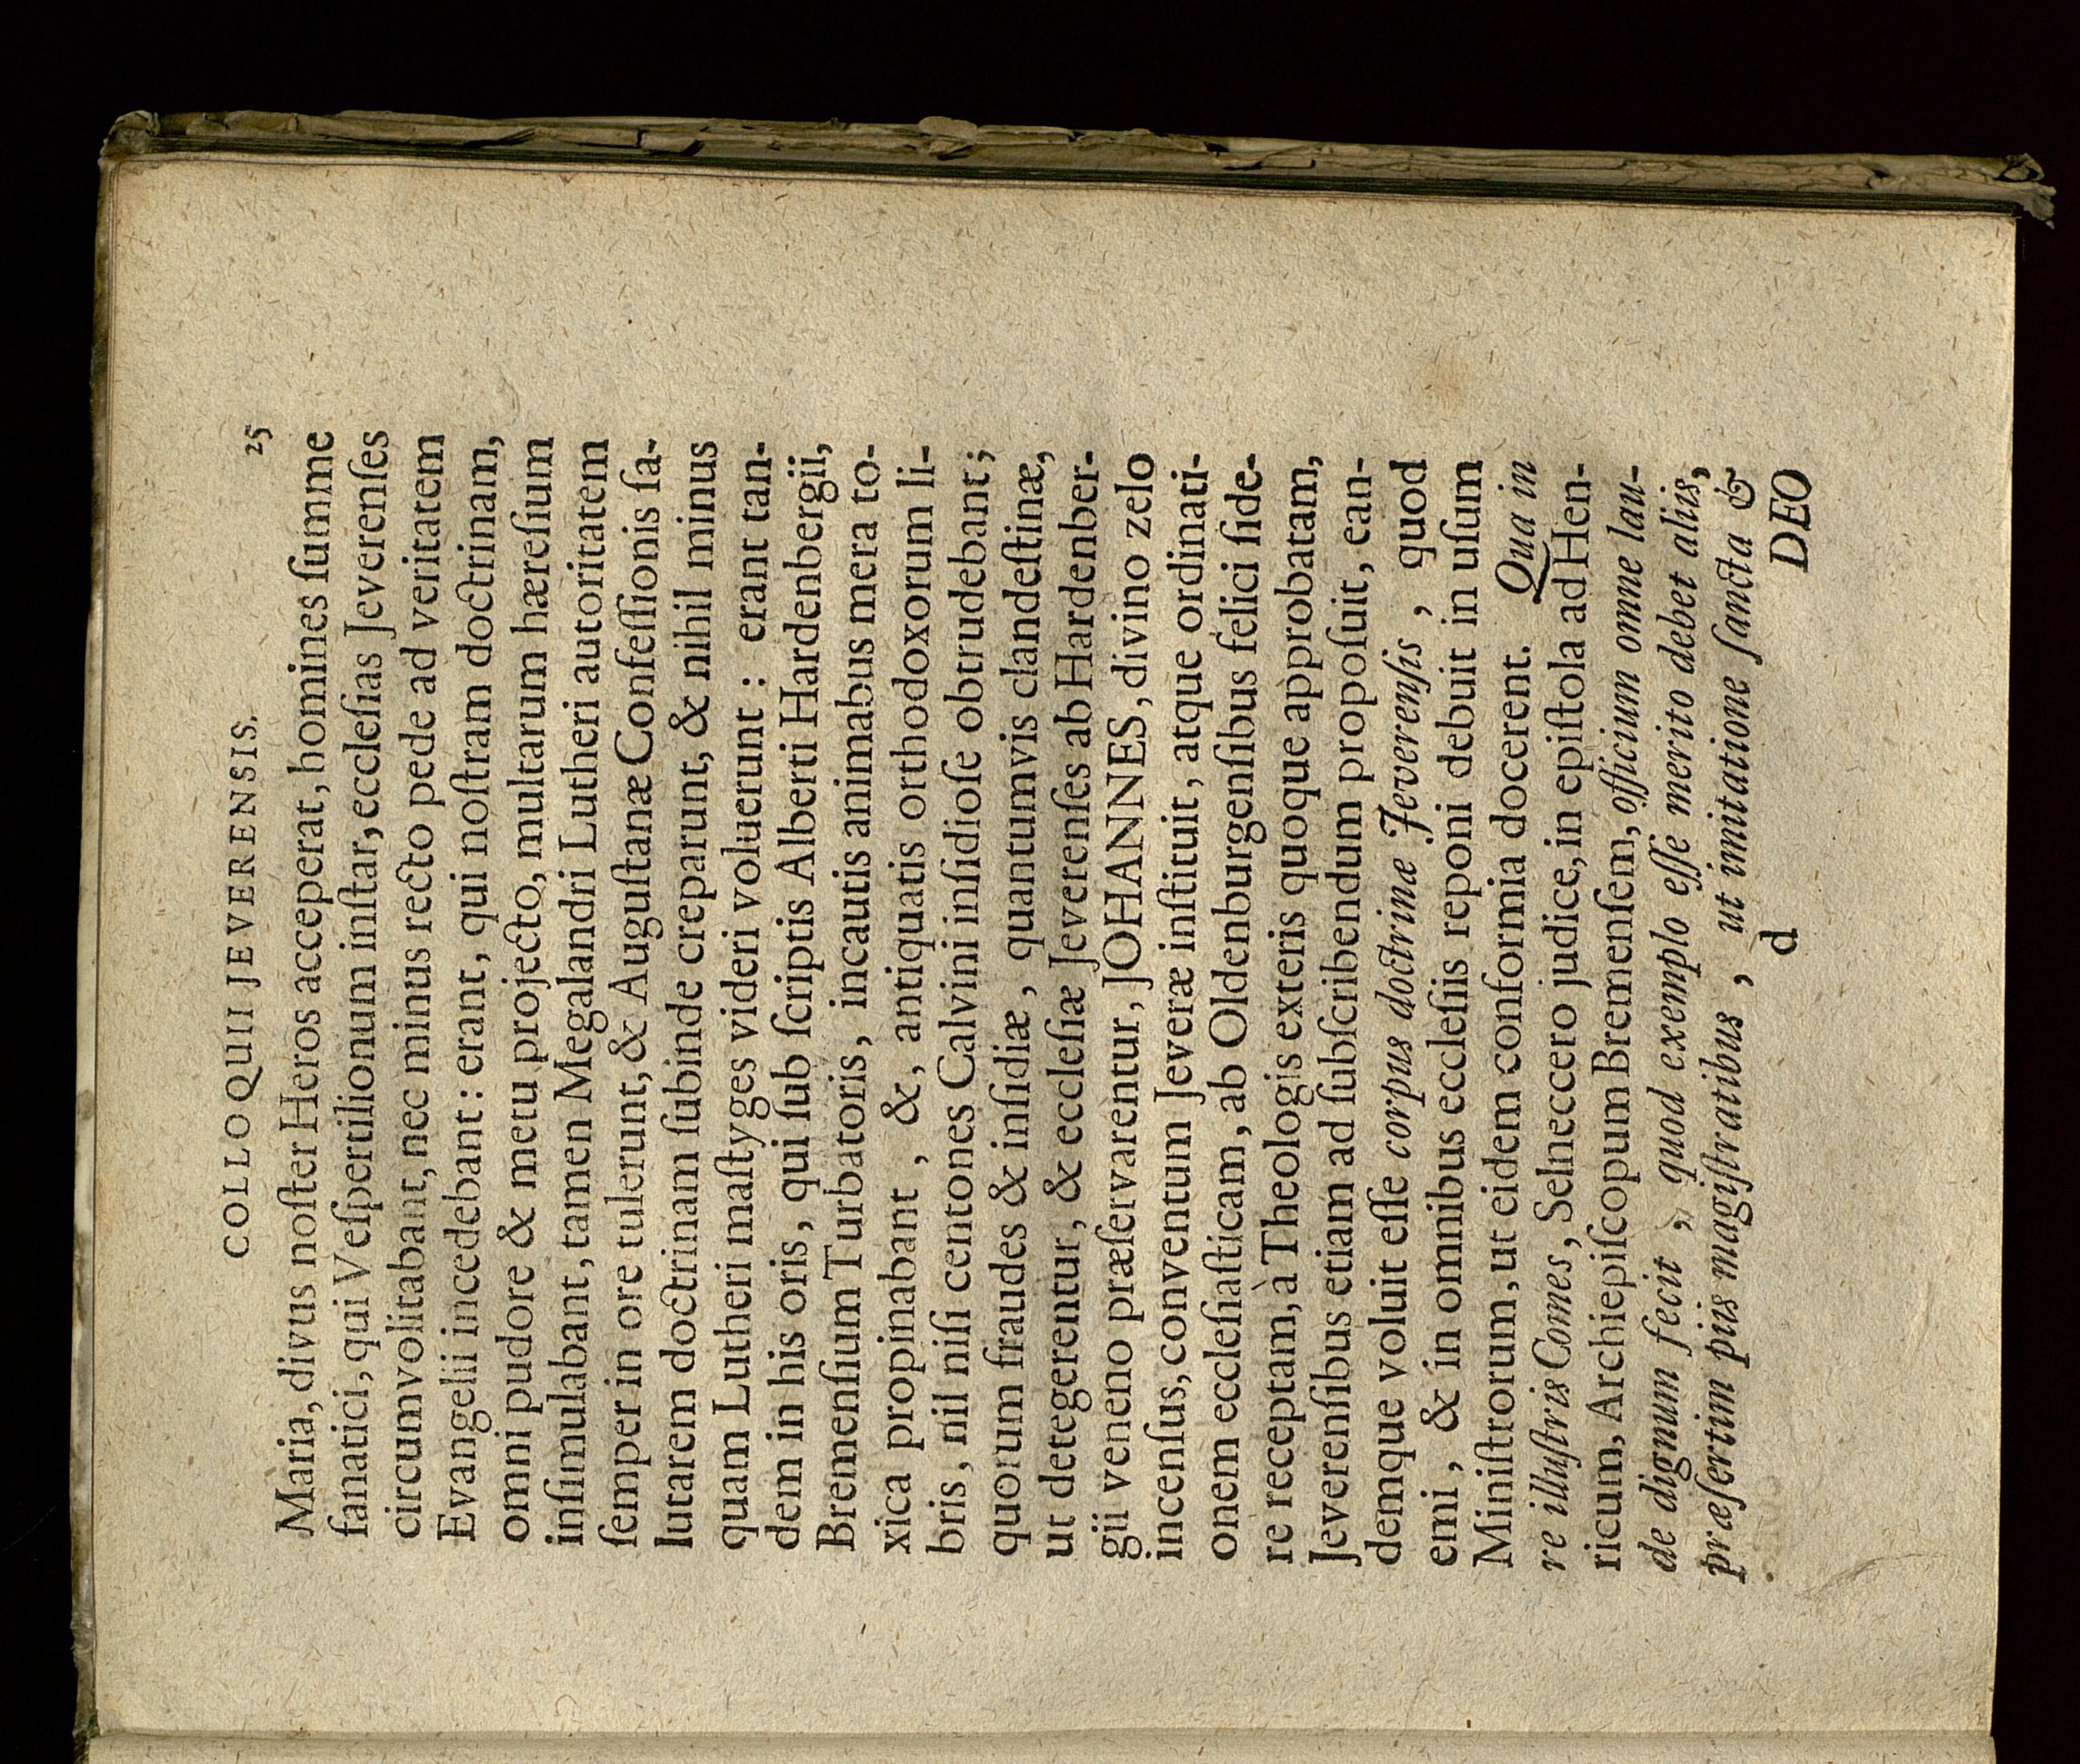 COLLOQUII JEVERENSIS. 25
Maria, divus noſter Heros acceperat, homines ſumme
fanatici, qui Veſpertilionum inſtar, eccleſias Jeverenſes
circumvolitabant, nec minus recto pede ad veritatem
Evangelii incedebant: erant, qui noſtram doctrinam,
omni pudore & metu projecto, multarum hæreſium
inſimulabant, tamen Megalandri Lutheri autoritatem
ſemper in ore tulerunt, & Auguſtanæ Confeſſionis ſa-
lutarem doctrinam ſubinde creparunt, & nihil minus
quam Lutheri maſtyges videri voluerunt: erant tan-
dem in his oris, qui ſub ſcriptis Alberti Hardenbergii,
Bremenſium Turbatoris, incautis animabus mera to-
xica propinabant, &, antiquatis orthodoxorum li-
bris, nil niſi centones Calvini inſidioſe obtrudebant;
quorum fraudes & inſidiæ, quantumvis clandeſtinæ,
ut detegerentur, & eccleſiæ Jeverenſes ab Hardenber-
gii veneno præſervarentur, JOHANNES, divino zelo
incenſus, conventum Jeveræ inſtituit, atque ordinati-
onem eccleſiaſticam, ab Oldenburgenſibus felici ſide-
re receptam, à Theologis exteris quoque approbatam,
Jeverenſibus etiam ad ſubſcribendum propoſuit, ean-
demque voluit eſſe corpus doctrinæ Jeverenſis, quod
emi, & in omnibus eccleſiis reponi debuit in uſum
Miniſtrorum, ut eidem conformia docerent. Qua in
re illuſtris Comes, Selneccero judice, in epiſtola ad Hen-
ricum, Archiepiſcopum Bremenſem, officium omne lau-
de dignum fecit, quod exemplo eſſe merito debet aliis,
præſertim piis magiſtratibus, ut imitatione ſancta &
d DEO